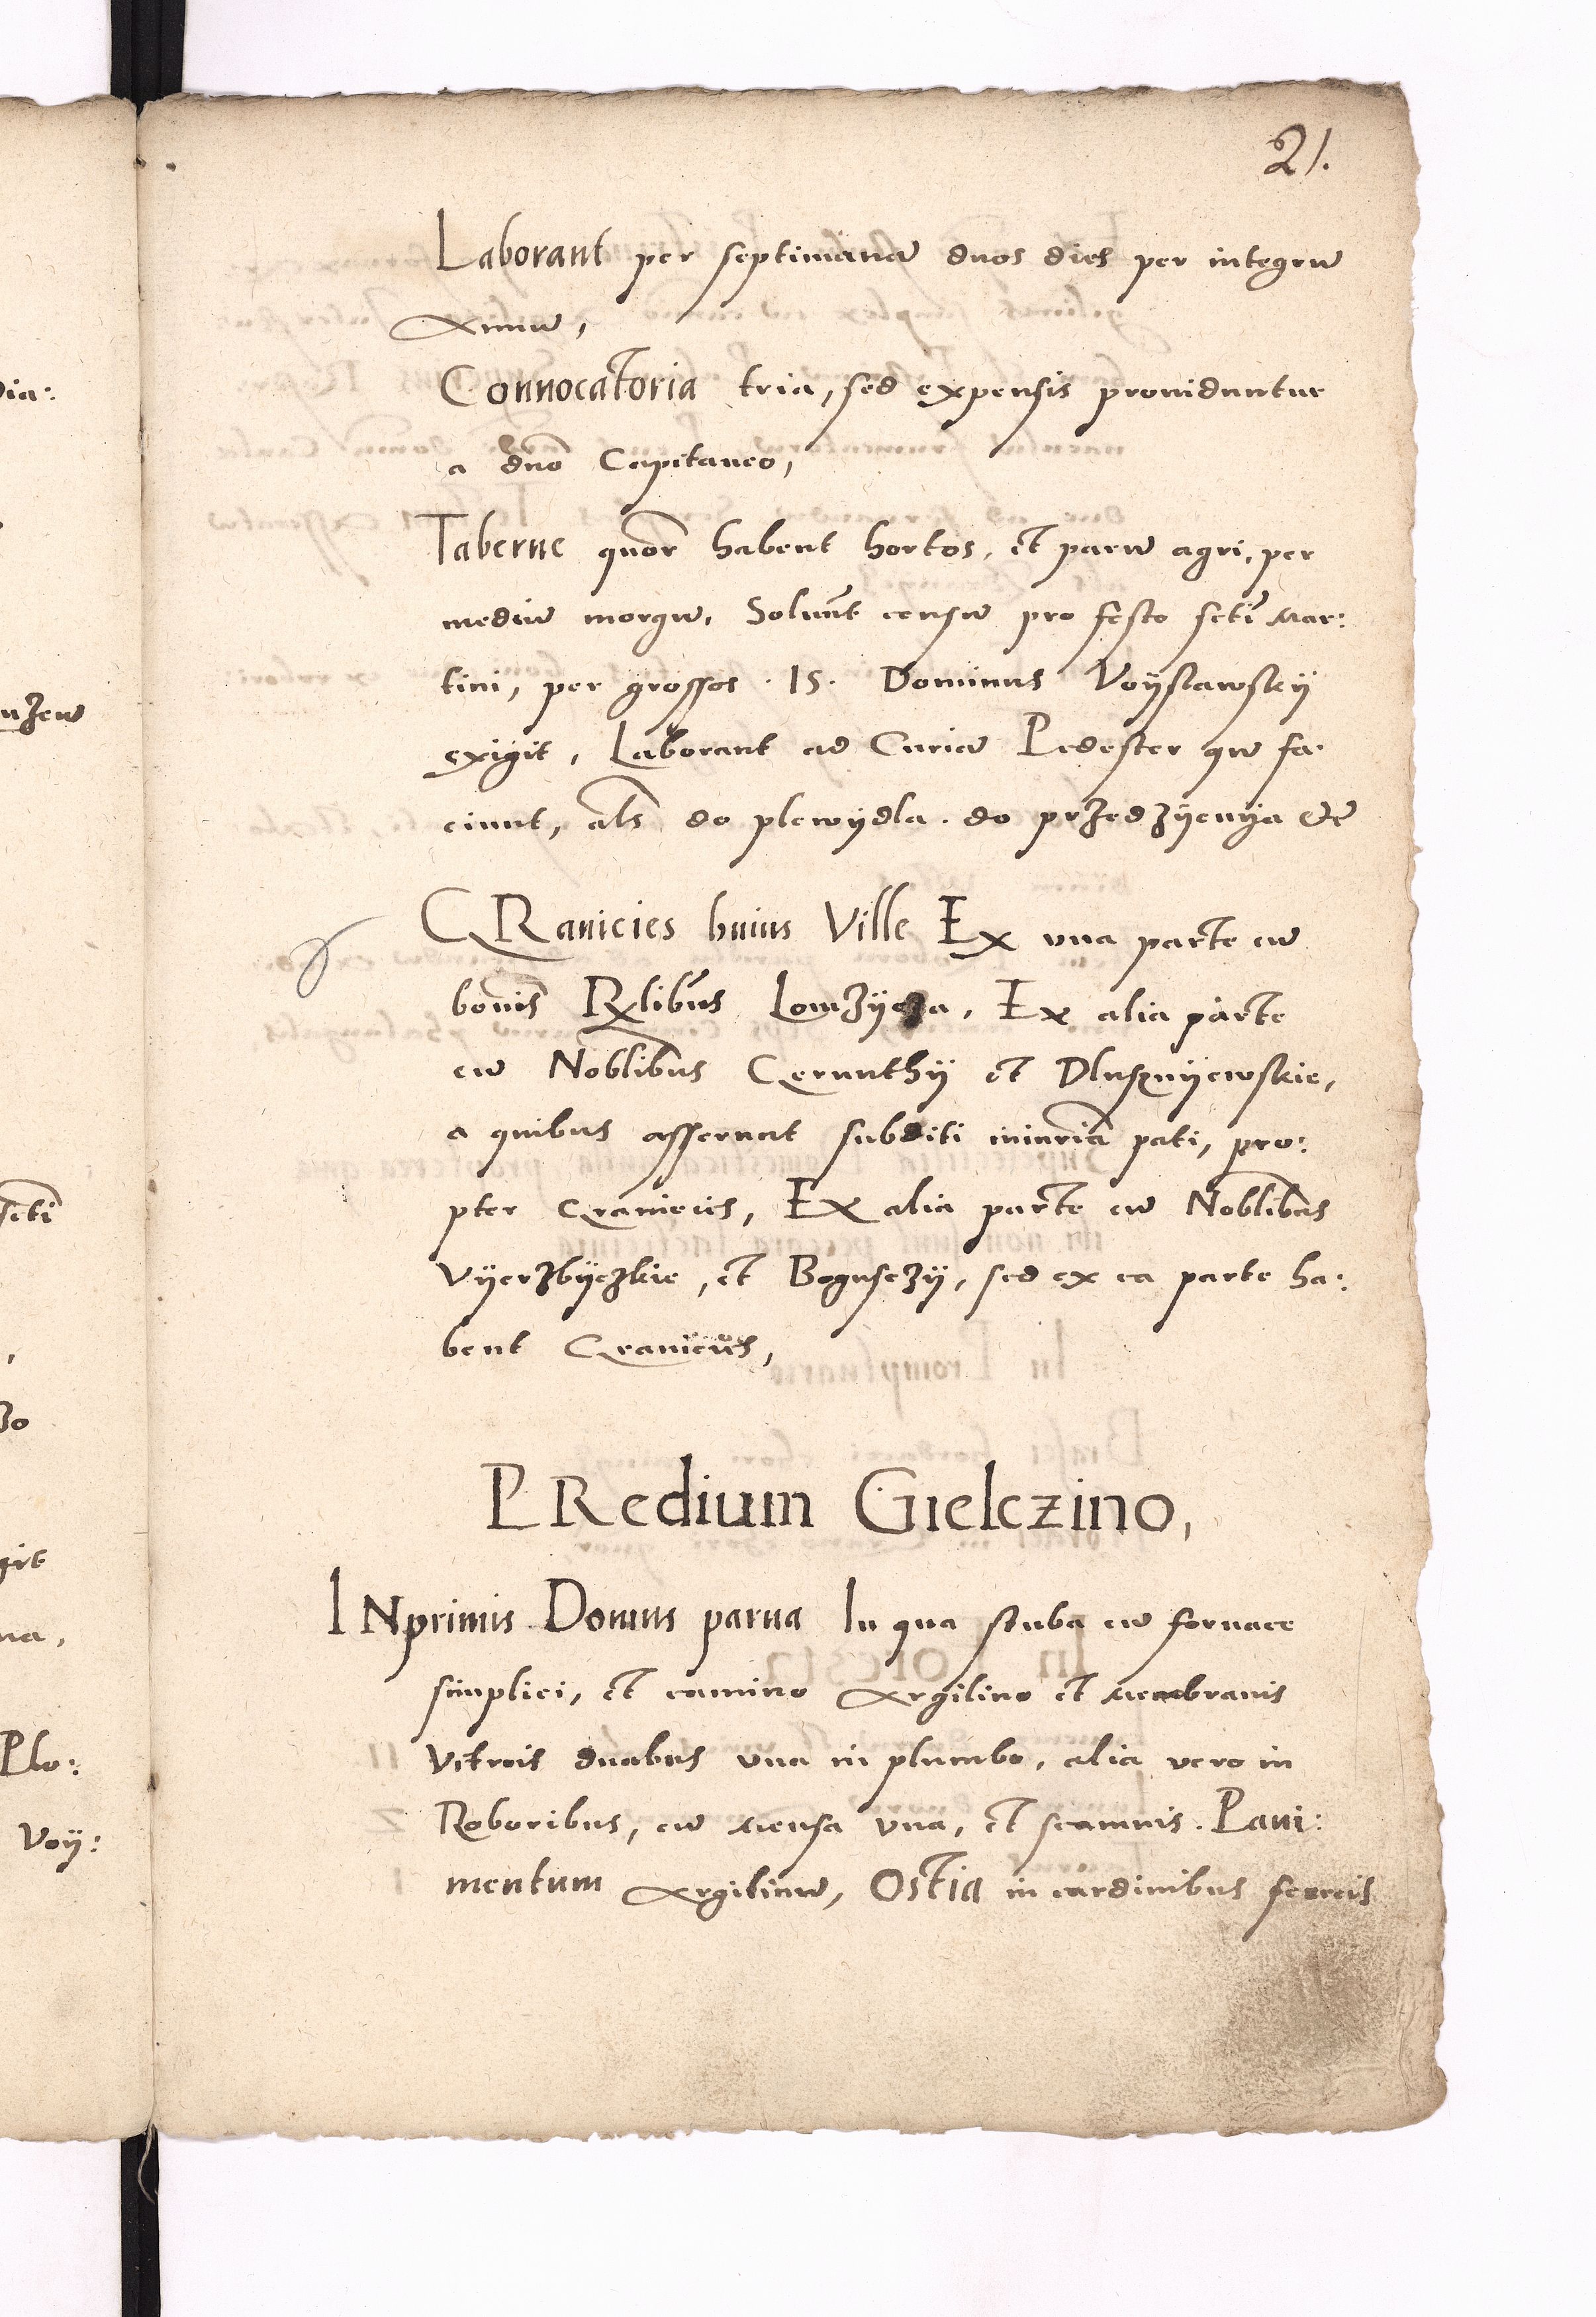 21.
Laborant per septimanā duos dies per integrū
Annū,
Connocatoria tria, sed expensis prouiduntur
a dno Capitaneo,
Taberne quor habent hortos, et parū agri, per
mediū morgū, Soluūt censū pro festo scti Mar:
tini, per grossos · 15 · Dominus Voyslawsky
exigit, Laborant ad Curiā Pedester qū fa:
ciunt, als do plewydla · do przedzyenya etc
GRanicies huius Ville Ex vna parte cū
bonis Rglibus Lomzycza, Ex alia parte
cū Noblibus Cerunthy et Dlusnyewskie,
a quibus asserunt subditi iniuriā pati, pro:
pter Granicies, Ex alia parte cū Noblibus
Vyerzbyczkie, et Bogusczy, sed ex ea parte ha:
bent Granicies,
PRedium Gielczino,
INprimis Domus parua In qua stuba cū fornace
simplici, et camino Argilino et Membranis
Vitreis duabus vna in plumbo, alia vero in
Roboribus, cū Mensa vna, et scamnis. Paui:
mentum Argilinū, Ostia in cardinibus ferreis
dia:
scti
zo
git
na,
Plo:
Voy: